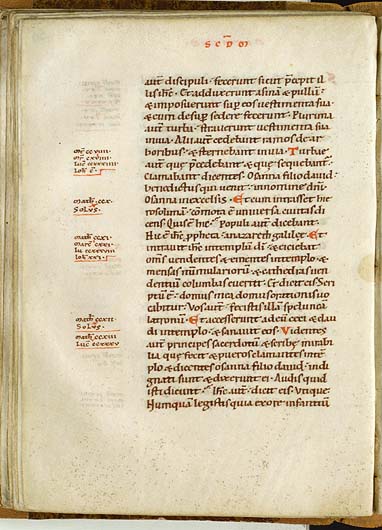 SCDM
aut discipuli fecerunt sicut p̄cepit il
lis ihc̄. Et adduxerunt asinā & pullū
& imposuerunt sup eos vestimenta sua
& eum desup sedere fecerunt. Plurima
aut turba straverunt vestimenta sua
in via. Alii aut cedebant ramos de ar
boribus & sternebant in via. Turbe
aut que p̄cedebant & que sequebantur
clamabant dicentes. Osanna filio david
benedictus qui venit in nomine dn̄i
Osanna in excelsis. Et cum intrasset hie
rosolimā. cōmota ē universa civitas di
cens. Quis ē hic. Populi aut dicebant.
Hic ē ihc̄ ppheta a nazareth galileę. Et
intravit ihc̄ in templum dī & eiciebat
omīs vendentes & ementes in templo. &
mensas nūmulariorū & cathedras ven
dentiū columbas evertit. Et dicit eis Scri
ptū ē. domus mea domus orationis vo
cabitur. Vos aut fecistis illā speluncā
latronū. Et accesserunt ad eū ceci & clau
di in templo. & sanavit eos. Videntes
aut principes sacerdotū & scribę mirabi
lia que fecit & pueros clamantes in tē
plo & dicentes osanna filio david. indi
gnati sunt & dixerunt ei. Audis quid
isti dicunt. Ihc̄ aut dicit eis. Utique
Numquā legistis quia ex ore infantiū
Math ccx.
SOLVS.
Math ccxi.
Math ccxii
SOLVS
Math ccxiii